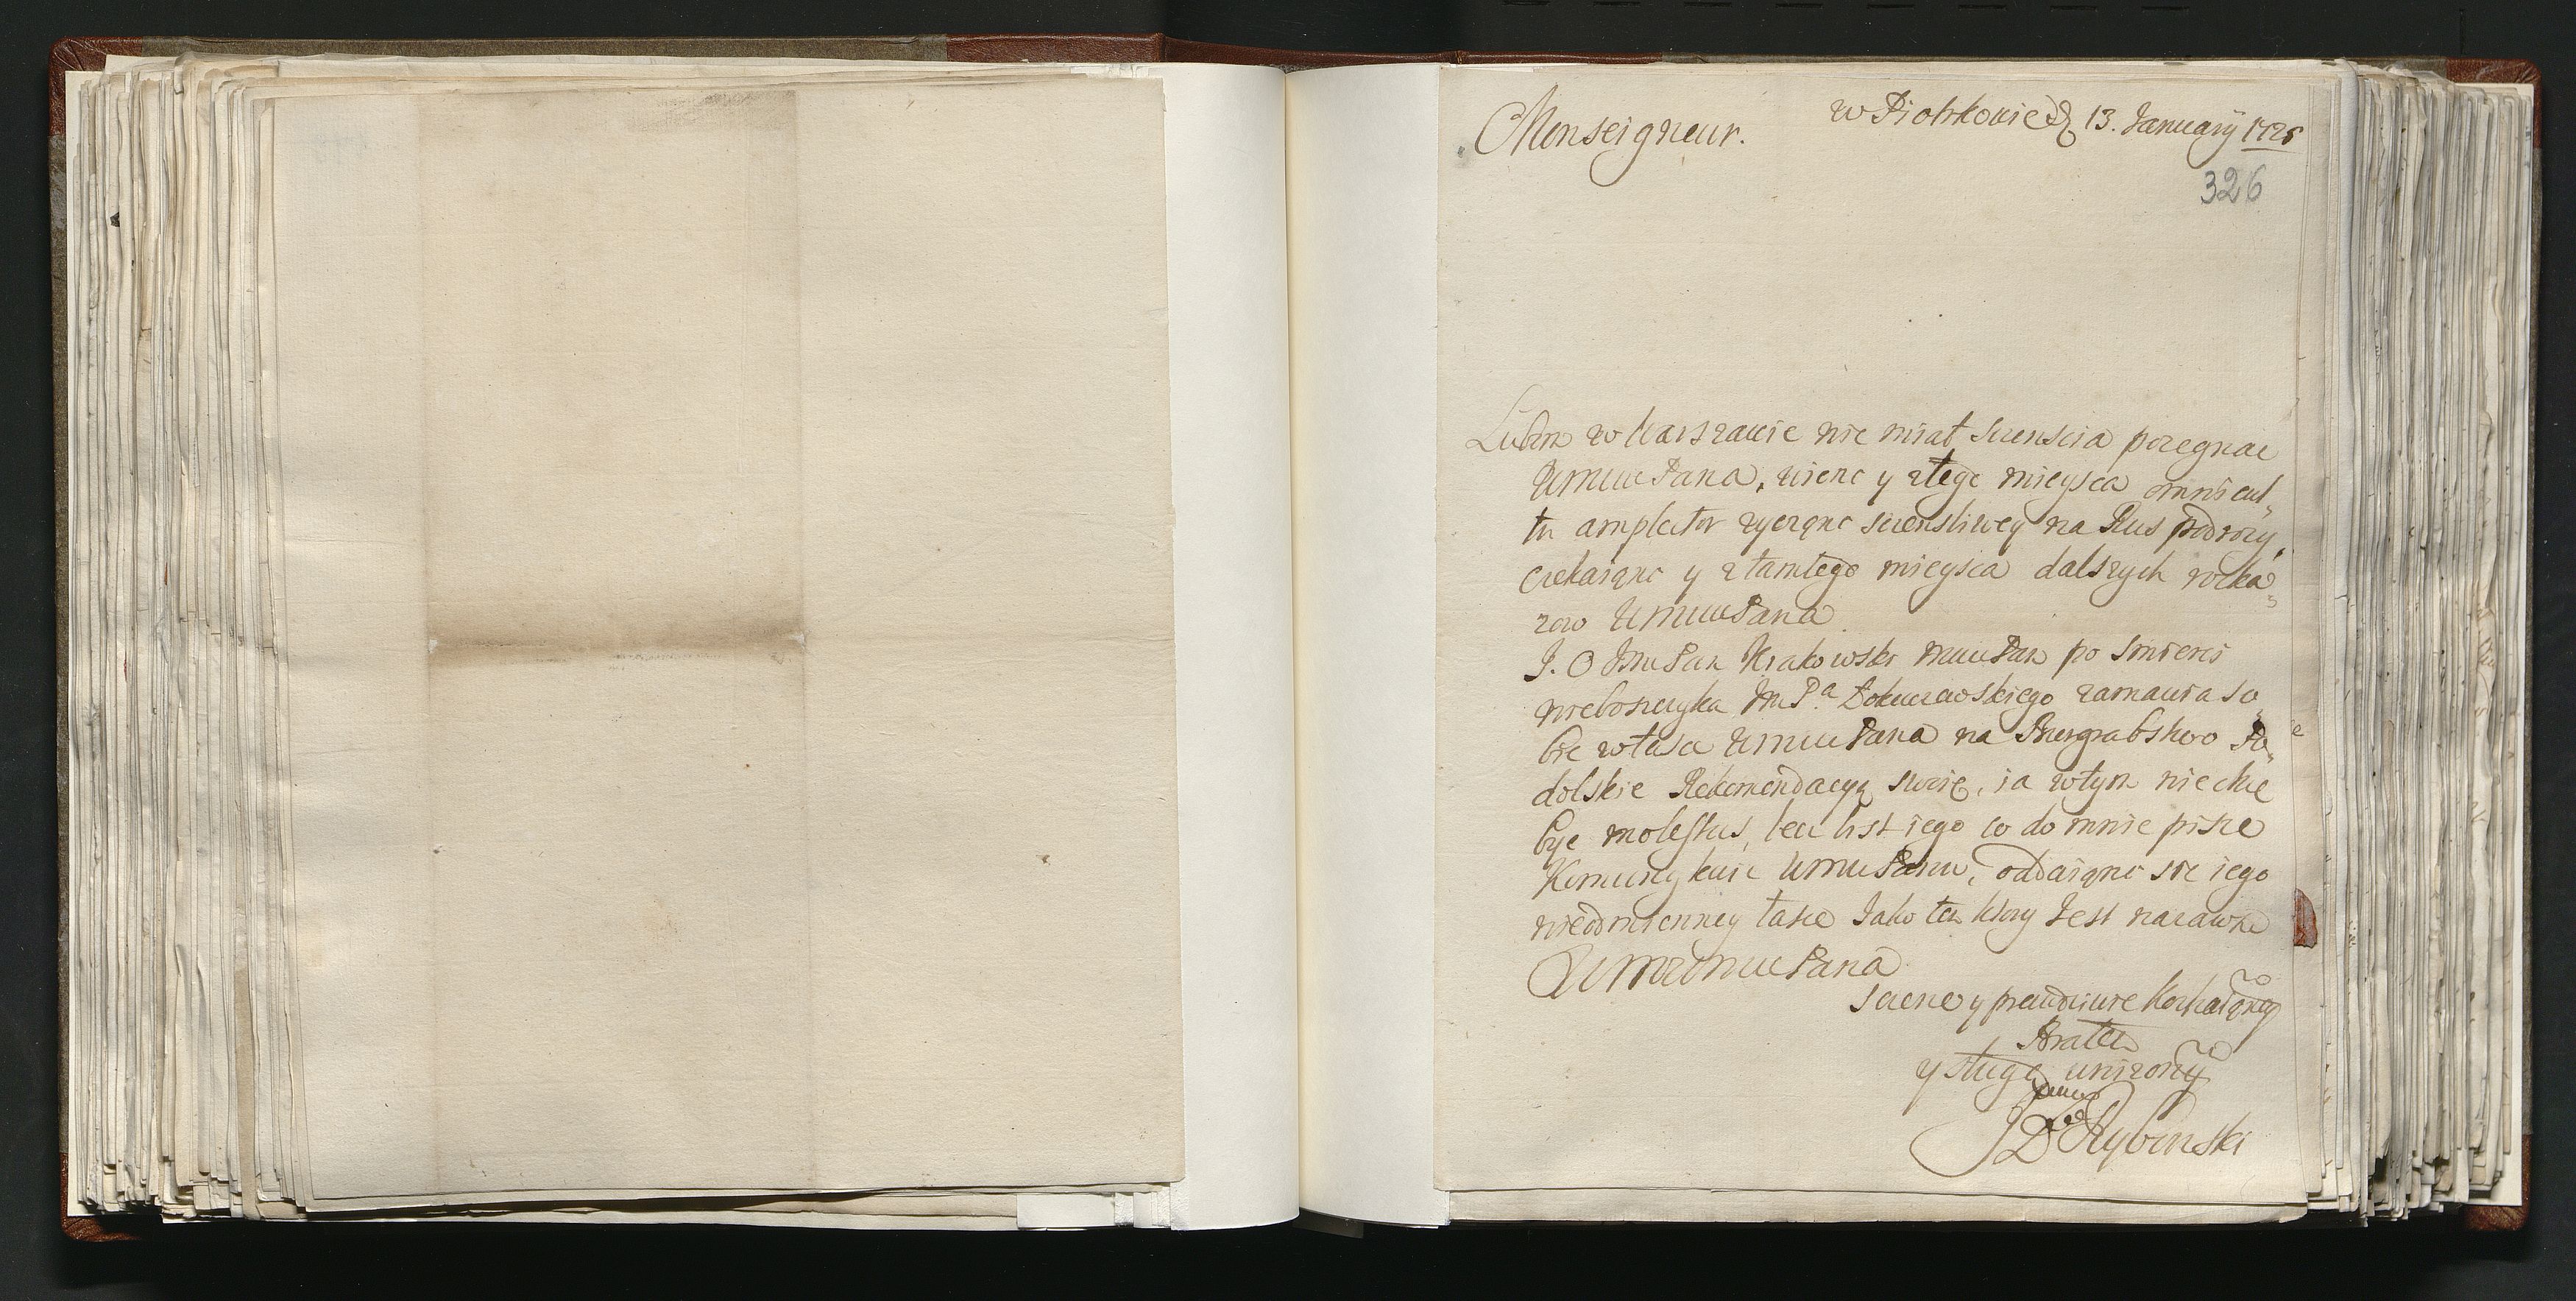 Monseigneur.
w Piotrkowie d. 13. January 1725
326
Lubm w Warszawie nie miał sczenscia pozegnac
WMM Pana, wienc y ztego mieysca omni cul„
tu amplector zycząnc sczensliwey na Rus podrozy,
czekaiąnc y ztamtego mieysca dalszych roska„
zow WMM Pana
J. O Jm Pan Krakowski MM Pan po Smierci
nieboszczyka Jm Pa zamawia so„
bie włassa WMM Pana na Burgrabstwo Po„
dolskie Rekomendacyą swoię, ia wtym nie chce
byc molestus, lecz list iego co do mnie pisze
Komunykuie WMM Panu, oddaiąnc sie iego
nieodmienney łasce Jako ten ktory Jest nazawsze
WM Pana
sczerze y prawdziwie Kochaiąncy
Bratem
y sługą unizonym
JD Rybinski